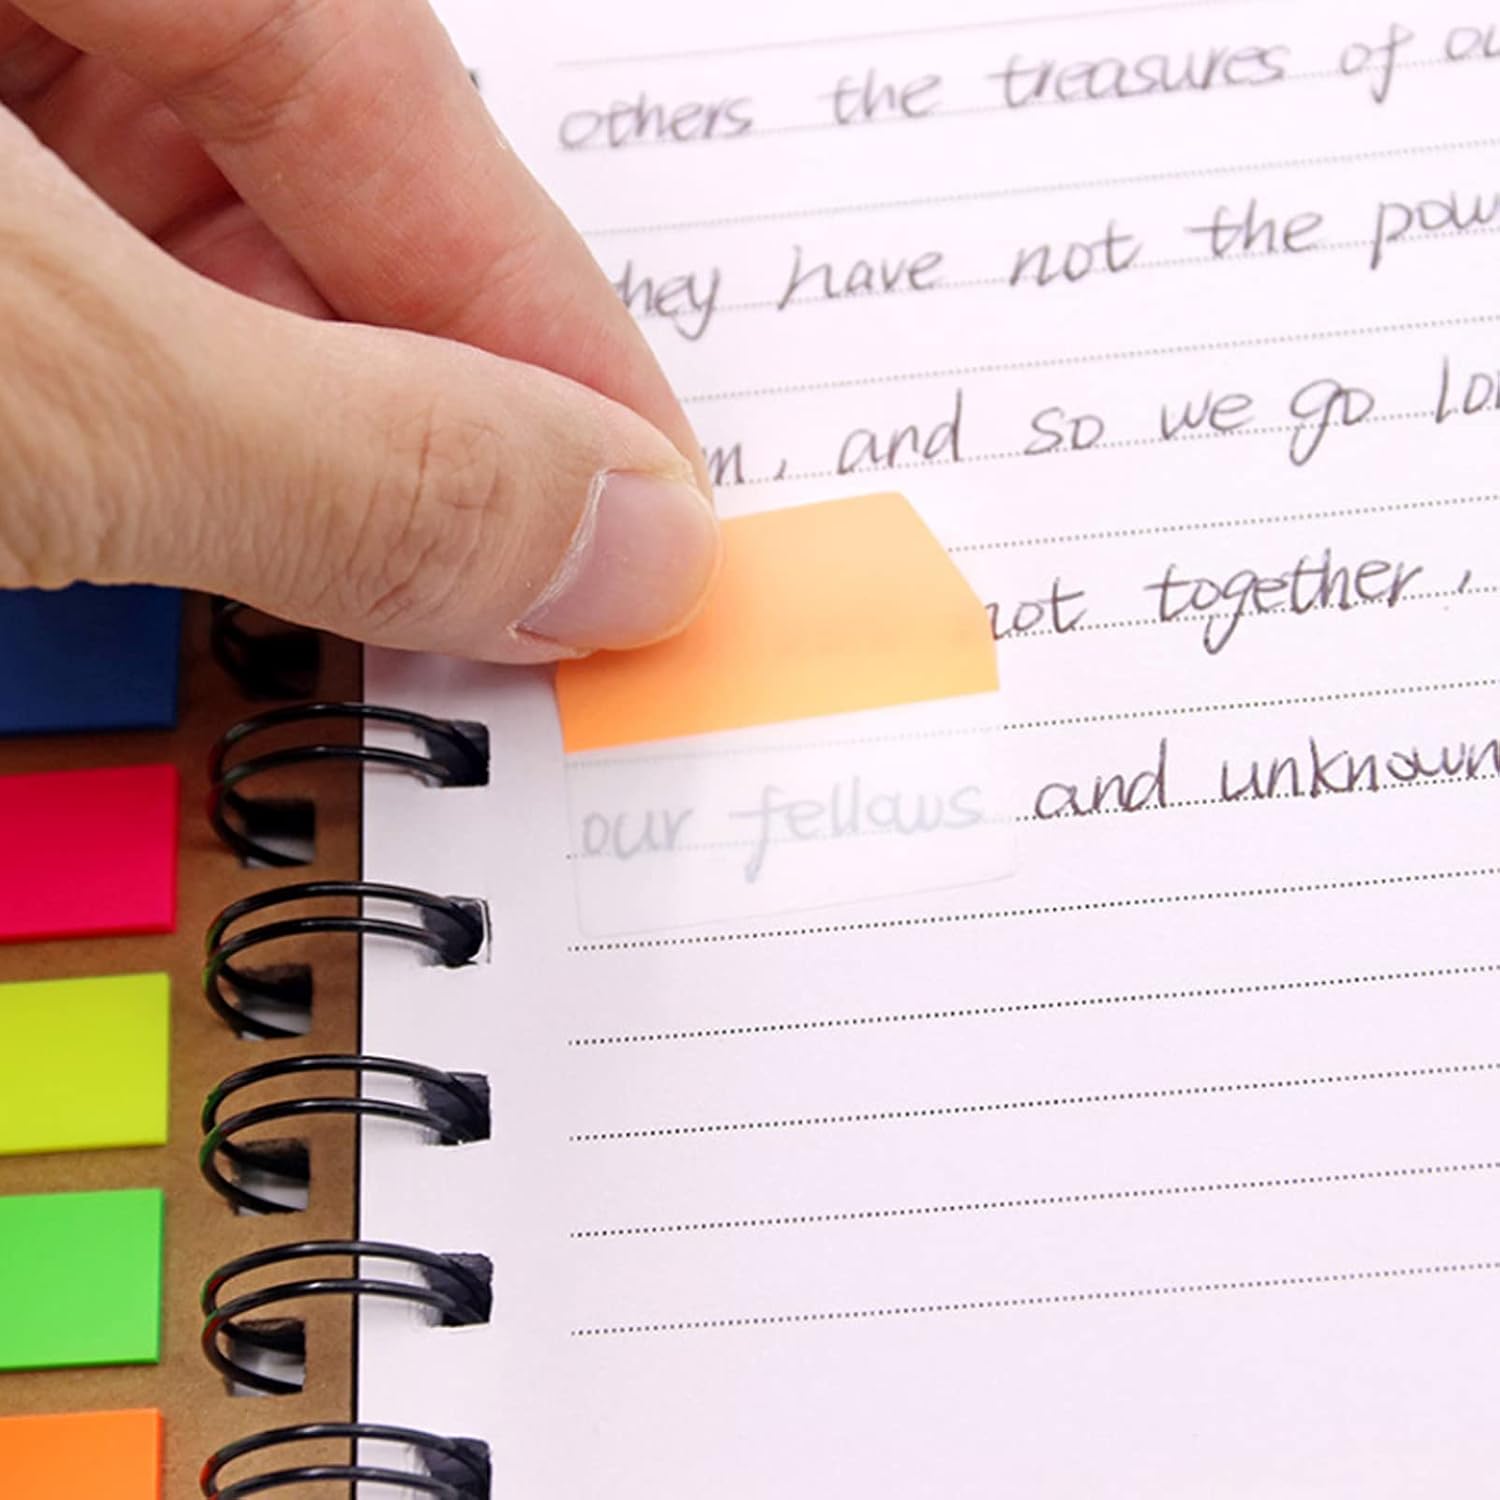 others the treasures of
hey have not the pow
m, and so we go lo
not together,
our fellows and unknown